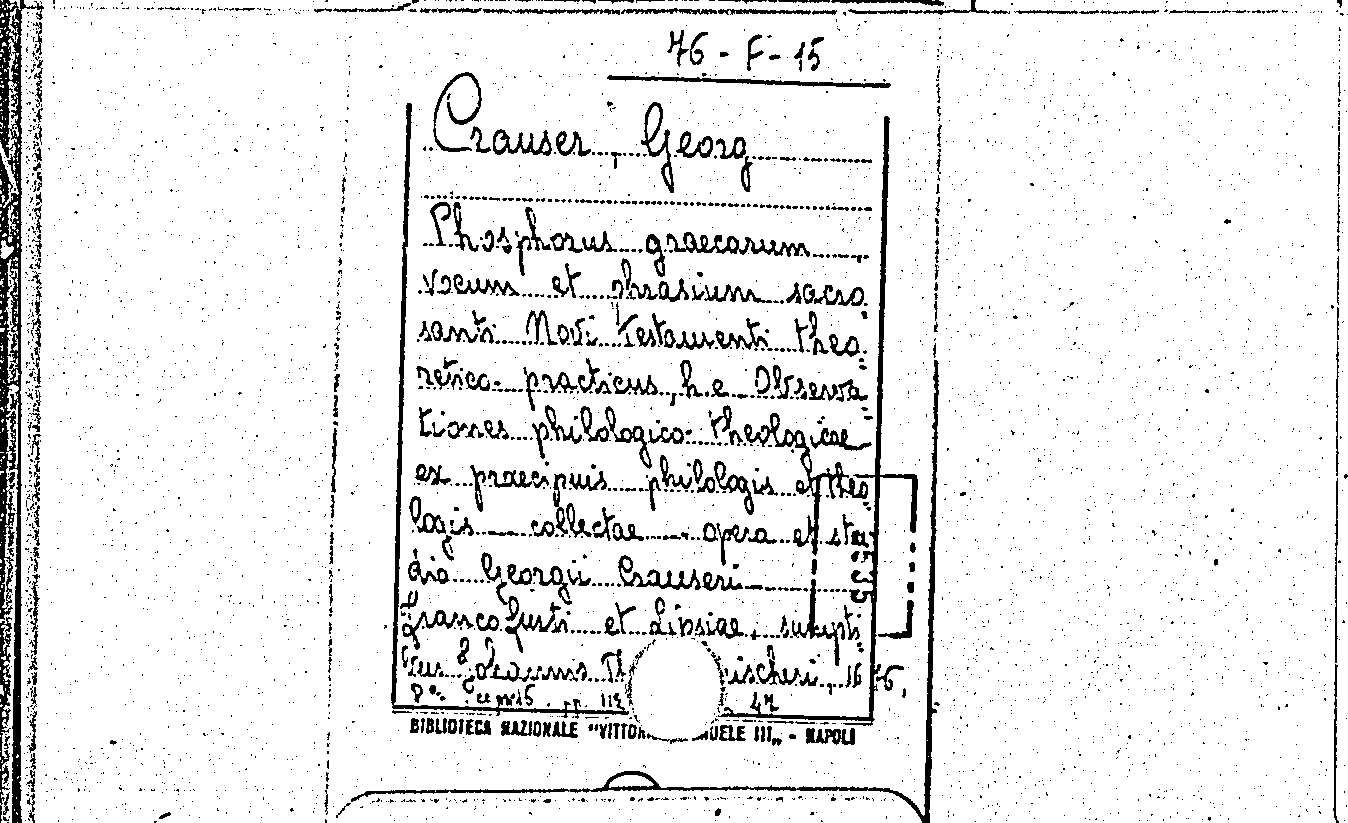 76 - F - 15
Crauser, Georg
Phosphorus graecarum
vocum et phrasium sacro
santi Novi Testamenti theo
retico-practicus, h. e. Observa
tiones philologico-theologicae
ex praecipuis philologis et theo
logis collectae opera et stu
dio Georgii Crauseri
Francofurti et Lipsiae, sumpti
bus Johannis ischeri, 1676.
8° pp. 47
BIBLIOTECA NAZIONALE "VITTOR UELE III„ - NAPOLI